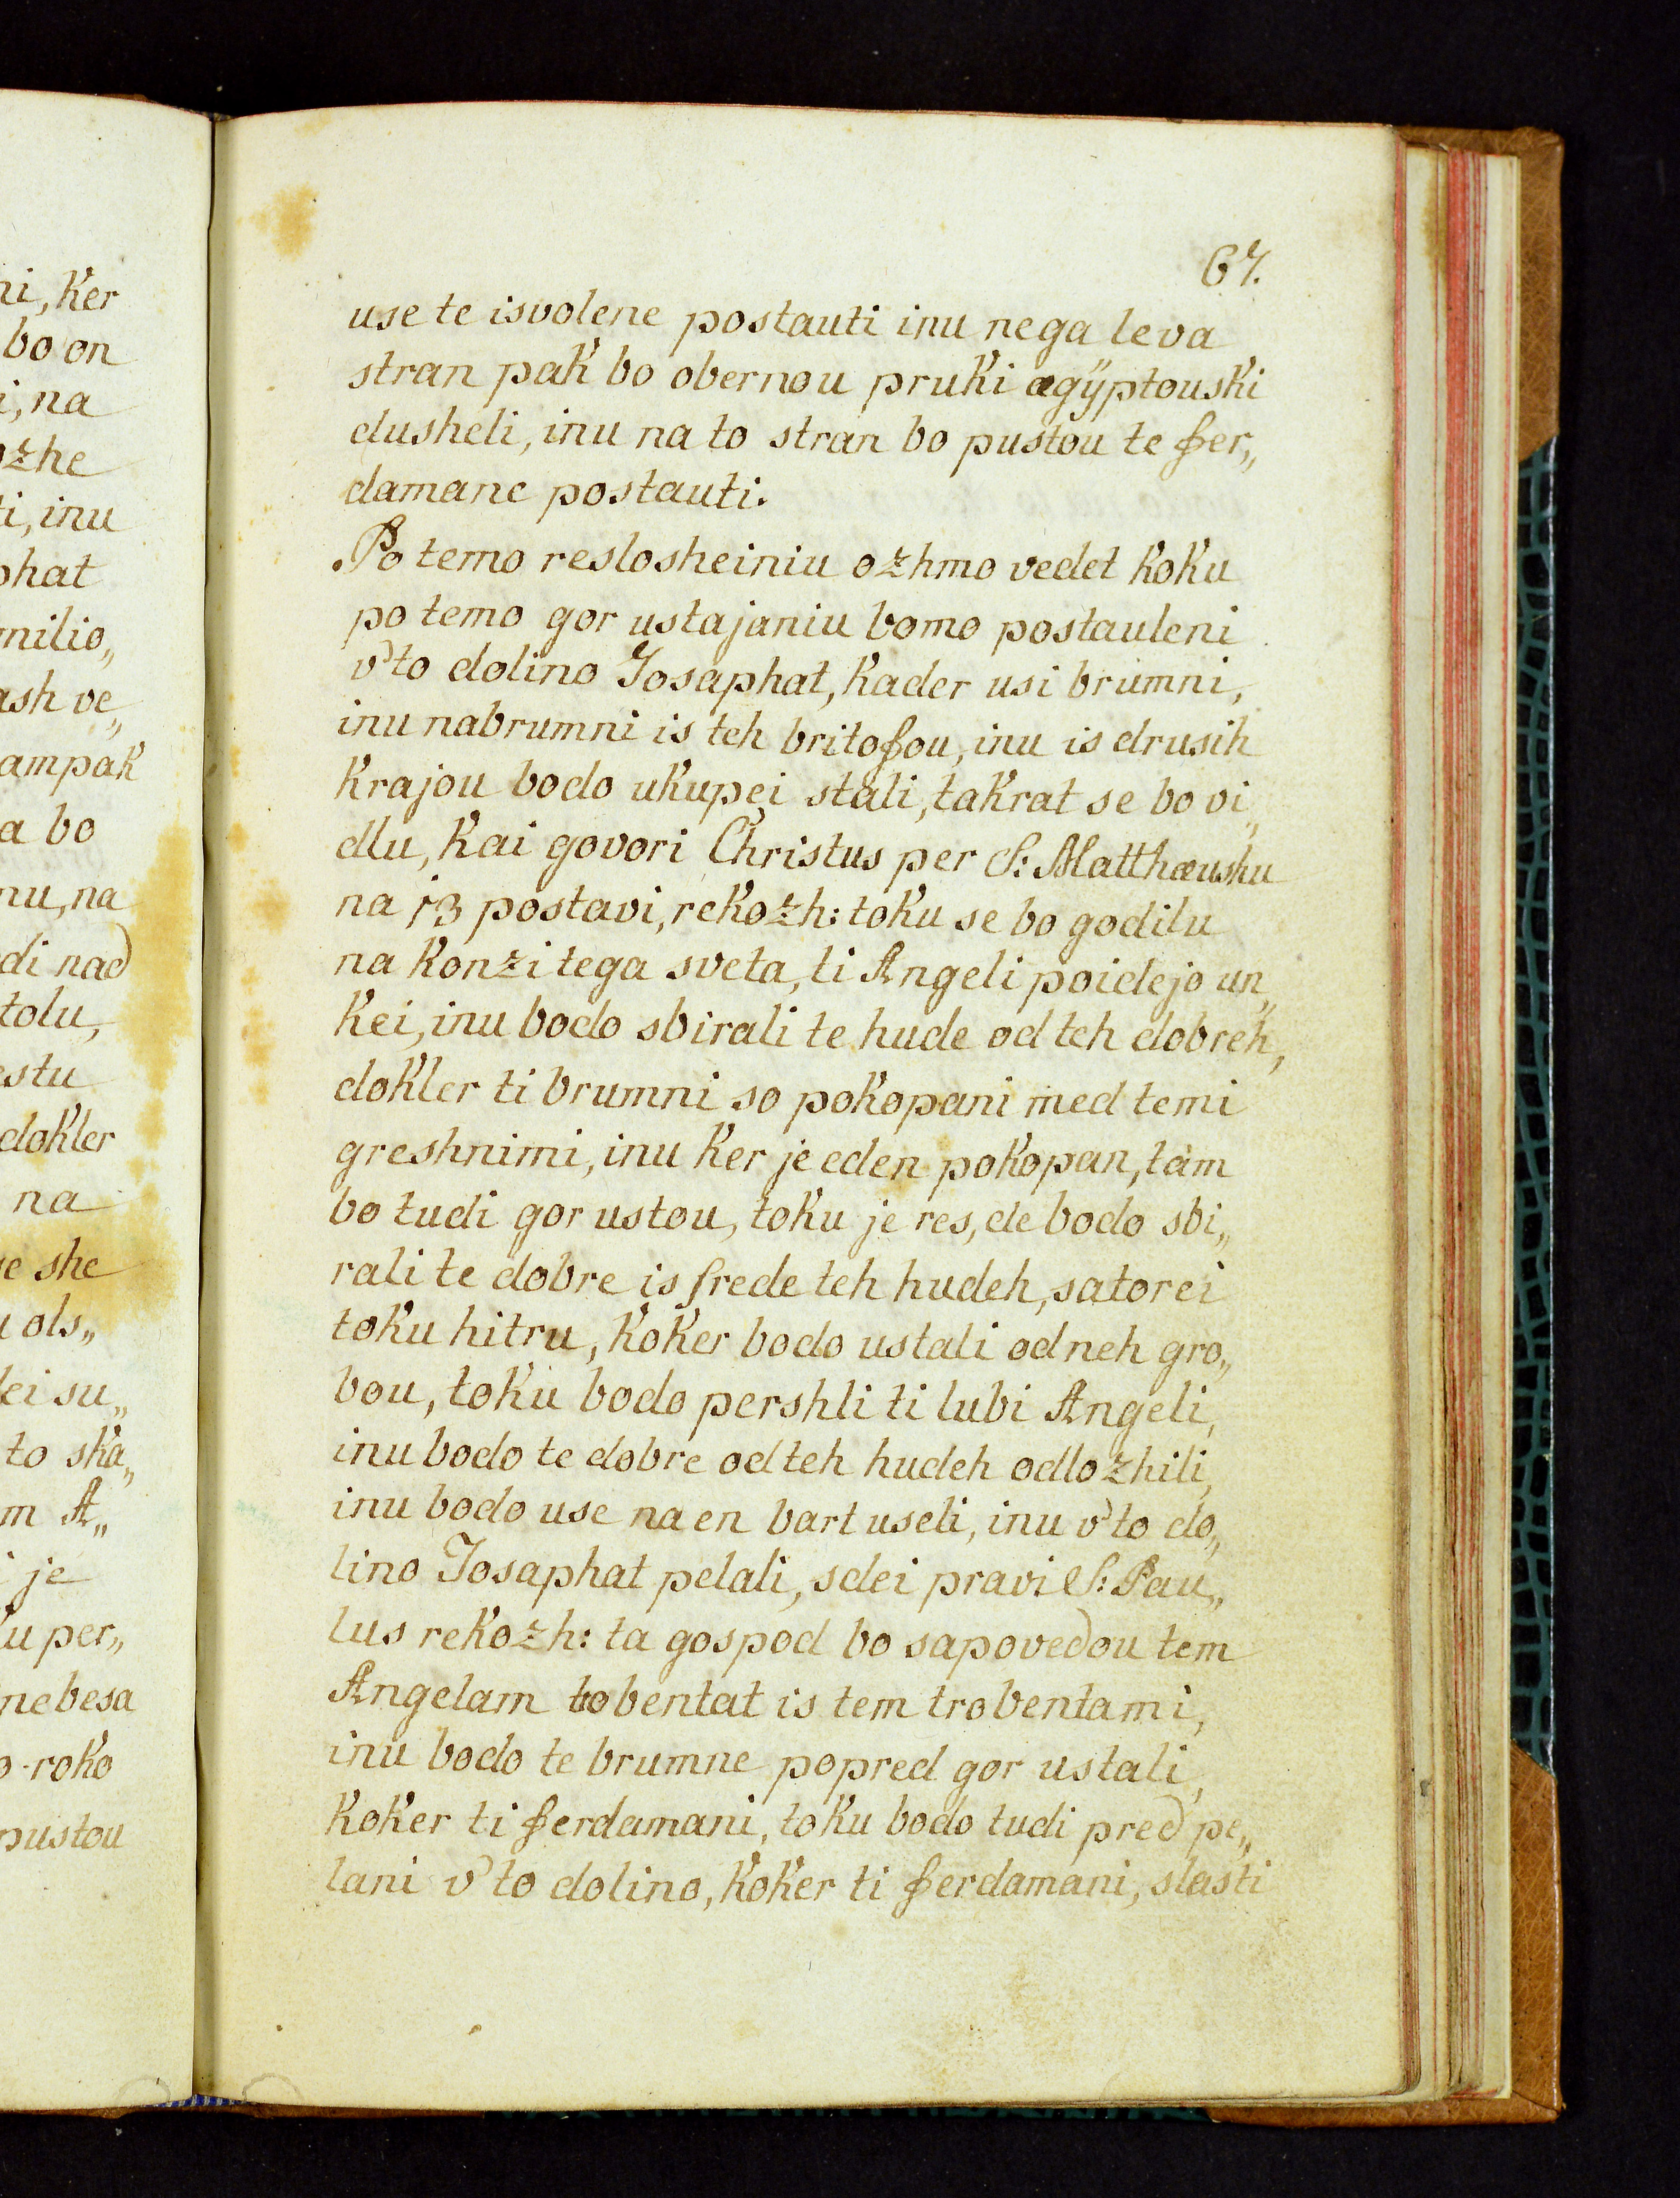 ni, ker
bo on
i, na
ozhe
ti, inu
phat
milio„
ash ve„
ampak
a bo
nu, na
di nad
tolu,
estu
dokler
na
e she
u ols„
lei su„
to ska„
m A„
i je
ku per„
nebesa
o roko
pustou
67.
use te isvolene postauti inu nega leva
stran pak bo obernou pruki ægÿptouski
dusheli, inu na to stran bo pustou te fer„
damane postauti.
Po temo reslosheiniu ozhmo vedet koku
po temo gor ustajaniu bomo postauleni
v'to dolino Josaphat, kader usi brumni,
inu nabrumni is teh britofou, inu is drusih
krajou bodo ukupei stali, takrat se bo vi„
dlu, kai govori Christus per S: Matthæushu
na 13 postavi, rekozh: toku se bo godilu
na konzi tega sveta, ti Angeli poidejo un„
kei, inu bodo sbirali te hude od teh dobreh,
dokler ti brumni so pokopani med temi
greshnimi, inu ker je eden pokopan, tam
bo tudi gor ustou, toku je res, de bodo sbi„
rali te dobre is srede teh hudeh, satorei
toku hitru, koker bodo ustali od neh gro„
bou, toku bodo pershli ti lubi Angeli,
inu bodo te dobre od teh hudeh odlozhili,
inu bodo use na en bart useli, inu v'to do„
lino Josaphat pelali, sdei pravi S: Pau„
lus rekozh: ta gospod bo sapovedou tem
Angelam tobentat is tem trobentami,
inu bodo te brumne popred gor ustali,
koker ti ferdamani, toku bodo tudi pred pe„
lani v'to dolino, koker ti ferdamani, slasti